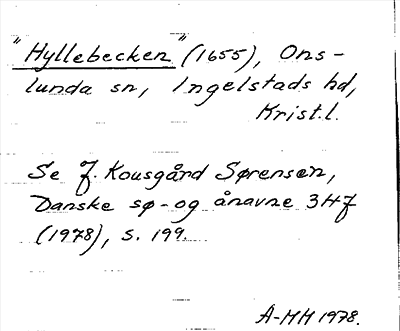 "Hyllebecken" (1655), Ons-
lunda sn, Ingelstads hd,
Krist.l.
Se J. Kousgård Sørensen,
Danske sø- og ånavne 3HJ
(1978), s. 199.
A-MH 1978.